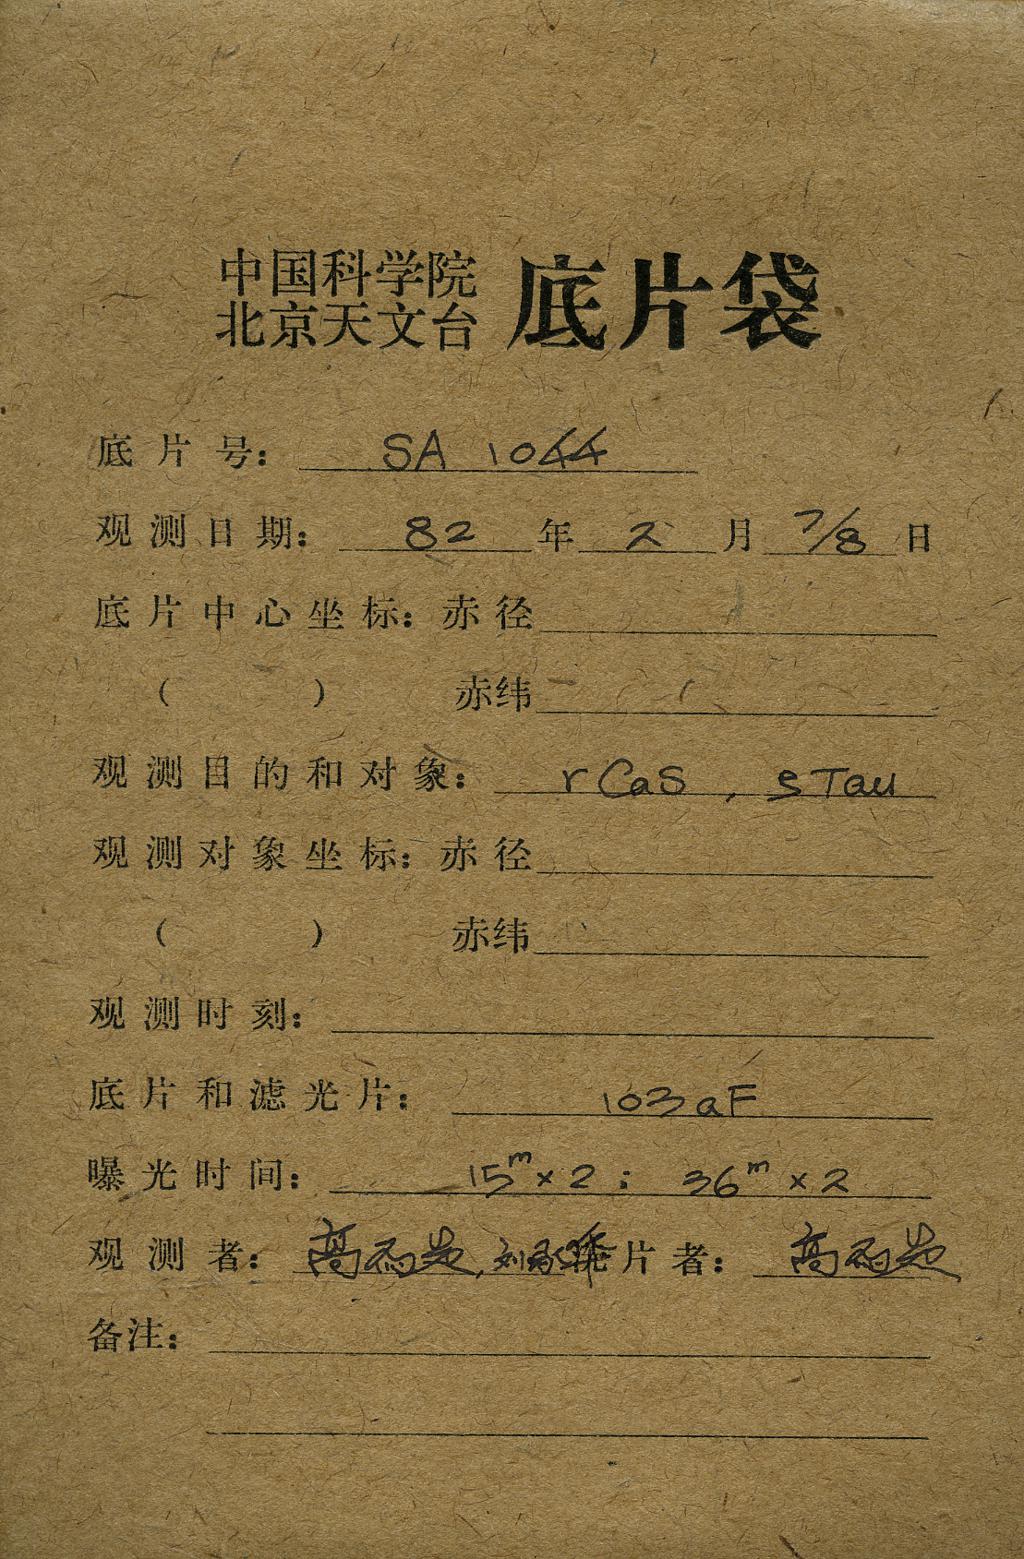 中国科学院
北京天文台 底片袋
底片号： SA 1044
观测日期： 82 年 2 月 7/8 日
底片中心坐标：赤径
（ ） 赤纬
观测目的和对象： r Cas , ςTau
观测对象坐标：赤径
（ ） 赤纬
观测时刻：
底片和滤光片： 103aF
曝光时间： 15m×2 ; 36m×2
观测者： 高 , 刘 片者： 高
备注：